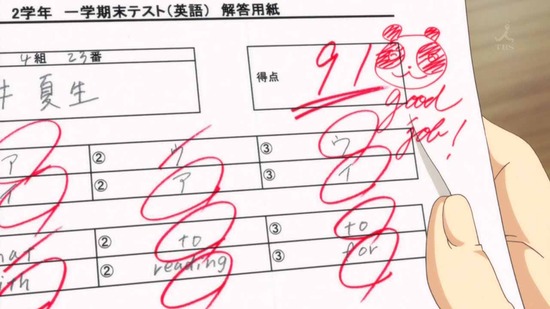 2学年 一学期末テスト(英語) 解答用紙
TBS
4組 23番
井 夏生
得点 91
good
job!
ア ② ウ ③ ウ
イ ② ア ③ イ
② to ③ to
② reading ③ for